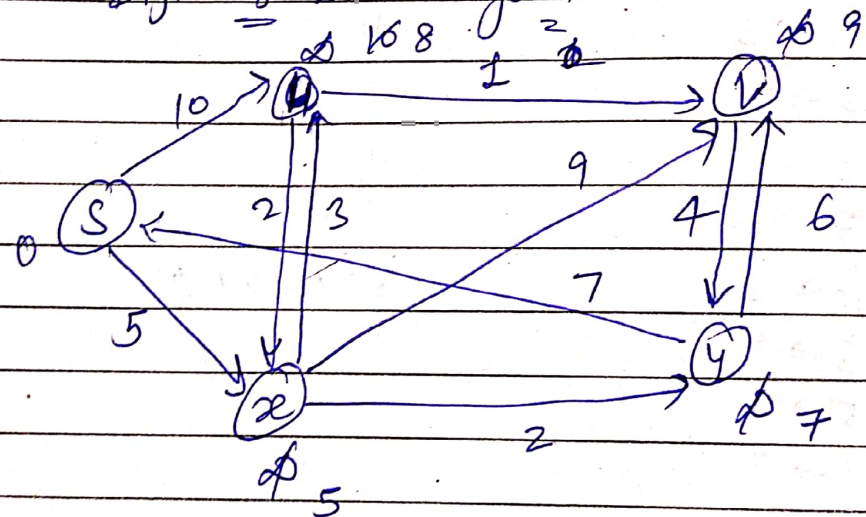 ∞ 10 8 2 ∞ 9
10 u 1 v
9
S 2 3 4 6
0
7
5 y
x 2 ∞ 7
∞ 5